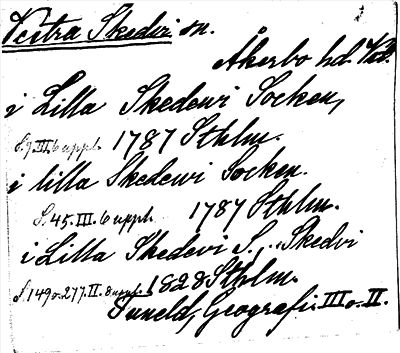 Vestra Skedvi sn.
Åkerbo hd. Vstl.
i Lilla Skedewi Socken,
S. 9. III. 6 uppl. 1787 Sthlm.
i lilla Skedewi Socken.
S. 45. III. 6 uppl. 1787 Sthlm.
i Lilla Skedevi S., Skedvi
S. 149 o. 277. II. 8 uppl. 1828 Sthlm.
Tuneld, Geografi. III o. II.